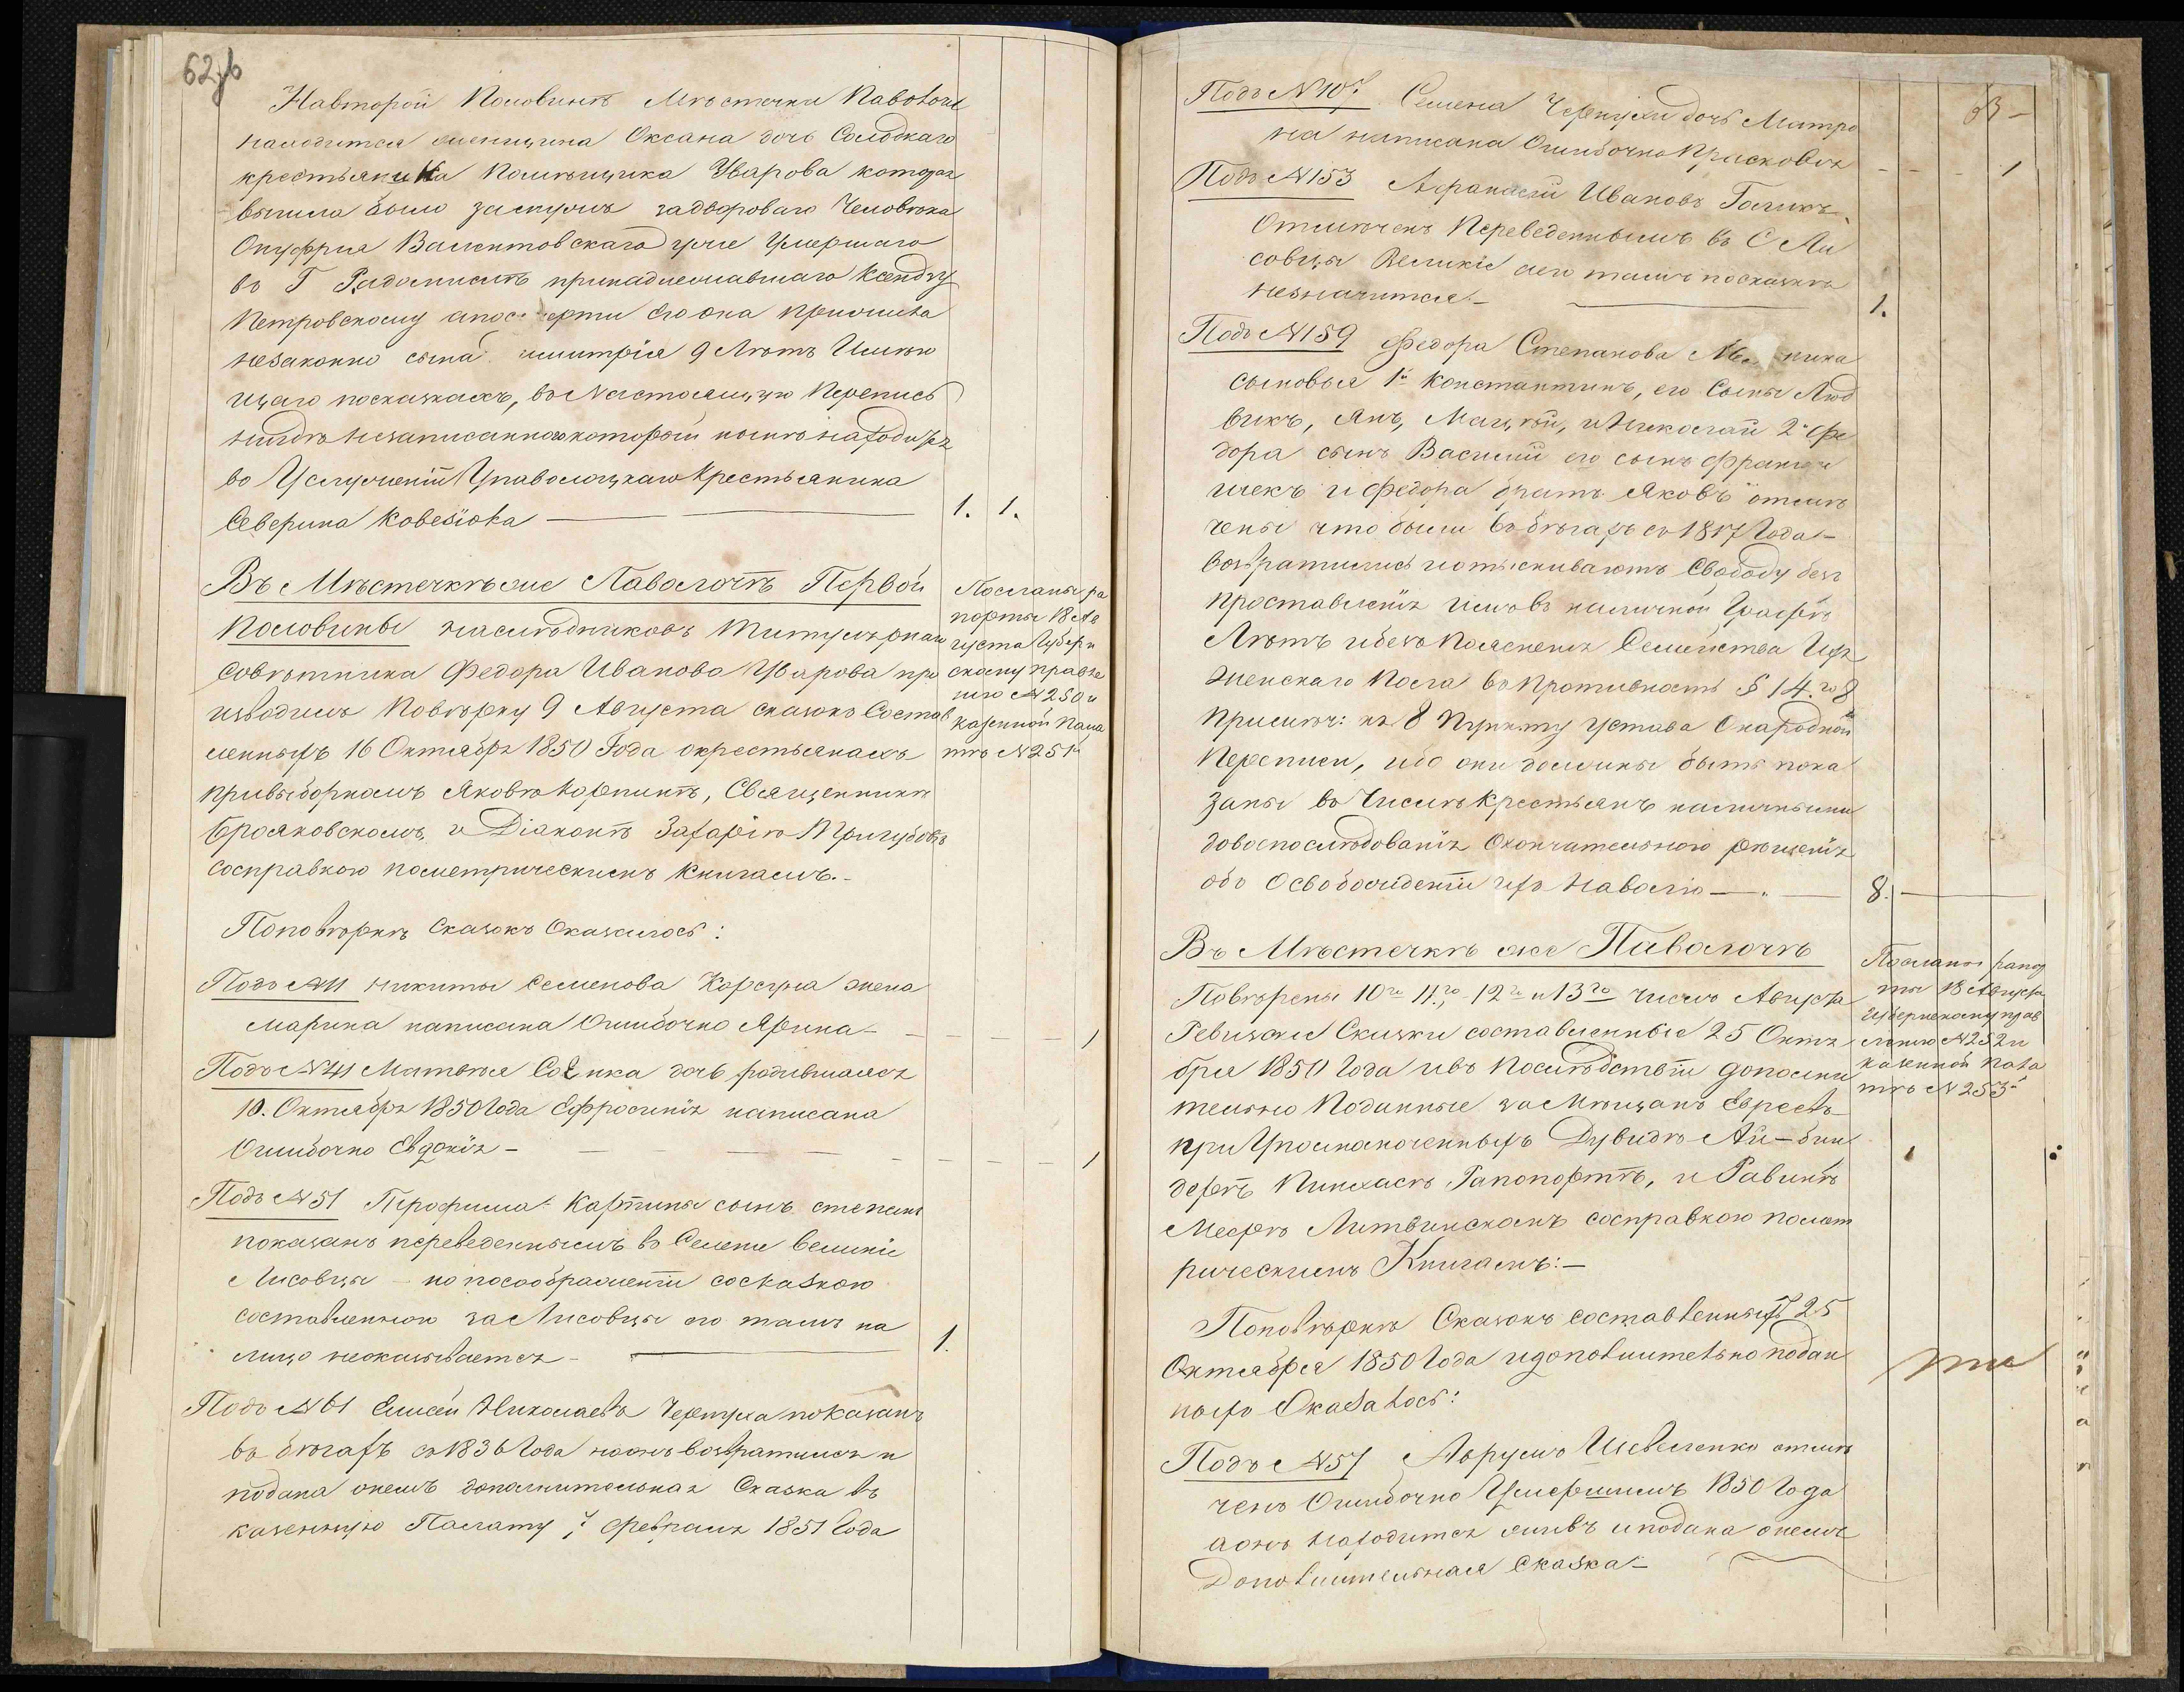 62 б
На второй Половинѣ Мѣстечка Паволочи
находится женщина Оксана дочь Солодкаго
крестьянина Помѣщика Уварова которая
вышла было замужъ задвороваго Человѣка
Онуфрія уже Умершаго
въ Г Радомислѣ принадлежавшаго Ксендзу
Петровскому апосмерти его она прижила
незаконно сына 9 Лѣтъ Имѣю
щаго посказкахъ, въ Настоящую Перепись
нигдѣ незаписаннаго который нынѣ находится
во Услуженіи Упаволоцкаго Крестьянина
Северина
1. 1.
Въ Мѣстечкѣ же Паволочѣ Первой
Половины наслѣдниковъ Титулярнаго
Совѣтника Федора Иванова Уварова про
изводилъ Повѣрку 9 Августа сказокъ Состав
ленныхъ 16 Октября 1850 Года окрестьянахъ
привыборномъ Яковѣ, Священникѣ
и Діаконѣ Захаріѣ
сосправкою пометрическимъ Книгамъ.-
Посланы ра
порты 18 Ав
густа Губерн
скому правле
нію № 250 и
казенной Пала
тѣ № 251й
Поповѣркѣ Сказокъ Оказалось:
Подъ № 11 Никиты Семенова Корсуна жена
Марина написана Ошибочно Ярина - 1
Подъ № 41 Матвѣя дочь родившаяся
10. Октября 1850 Года Ефросинія написана
Ошибочно Евдокія - 1
Подъ № 51 сынъ степанъ
показанъ переведеннымъ въ Селеніе Великіе
Лисовцы - но посоображеніи соскаскою
составленною за Лисовцы его тамъ на
лицо неоказывается - 1.
Подъ № 61 Елисей Николаевъ показанъ
въ бѣгахъ съ 1836 Года ноонъ возвратился и
подана онемъ дополнительная Сказка въ
казенную Палату 7 февраля 1851 Года
Подъ № 107 Семена дочь Матро
на написана Ошибочно Прасковья - 1
Подъ № 153 Афанасій Ивановъ
Отмѣченъ Переведеннымъ въ С Ли
совцы Великіе аего тамъ посказкѣ
незначится - 1.
Подъ № 159 Федора Степанова
сыновья 1й Константинъ, его Сыны Люд
викъ, Янъ, Мацѣй, иНиколай 2й Фе
дора сынъ Василій его сынъ Франци
шекъ иФедора братъ Яковъ отмѣ
чены что были въ бѣгахъ съ 1817 Года -
возвратились иотыскиваютъ Свободу безъ
проставленія Имъ въ наличной Графѣ
Лѣтъ ибезъ Поясненія Семейства Ихъ
Женскаго Пола въ Противность § 14. го 8
Примѣч: къ 8 Пункту Устава Онародной
Переписи, ибо они должны быть пока
заны въ Числѣ Крестьянъ наличными
довоспослѣдованія Окончательнаго рѣшенія
объ Освобожденіи ихъ Наволю — 8.
Въ Мѣстечкѣ же Паволочѣ
Повѣрены 10го 11.го 12го и 13го числъ Августа
Ревизскіе Сказки составленные 25 Октя
бря 1850 Года ивъ Послѣдствіи дополни
тельно Поданные за Мѣщанъ Евреевъ
при Уполномоченныхъ Дувидѣ Ай-бин
дерѣ Пинхасѣ Рапопортѣ, и Равинѣ
Меерѣ Литвинскомъ сосправкою помет
рическимъ Книгамъ:-
Посланы рапор
ты 18 Августа
Губернскому прав
ленію № 252 и
казенной Пала
тѣ № 253й
Поповѣркѣ Сказокъ составленныхъ 25
Октября 1850 Года идополнительно подан
ныхъ Оказалось:
Подъ № 57 отмѣ
ченъ Ошибочно Умершимъ 1850 Года
аонъ находится живъ иподана онемъ
Дополнительная Сказка -